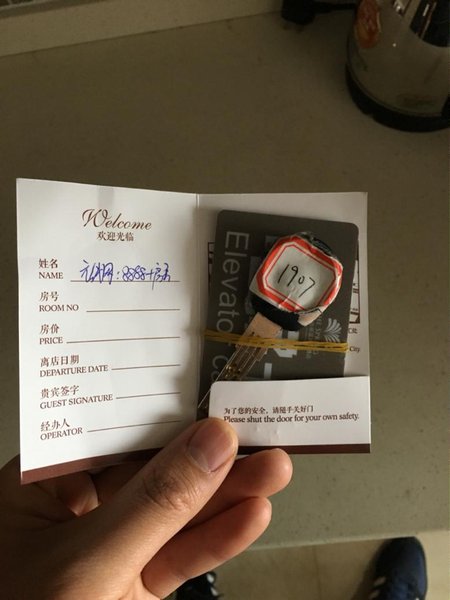 Welcome
欢迎光临
姓名
NAME
房号
ROOM NO
房价
PRICE
离店日期
DEPARTURE DATE
贵宾签字
GUEST SIGNATURE
经办人
OPERATOR
Elevator
1907
City.
为了您的安全，请随手关好门
Please shut the door for your own safety.